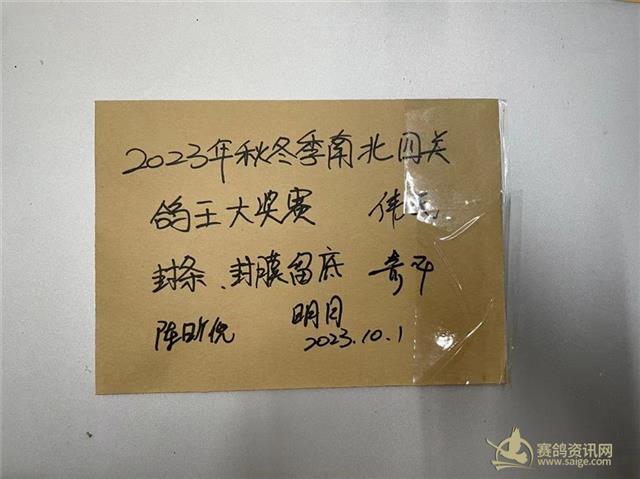 2023年秋冬季南北四关
鸽王大奖赛
封条、封膜留底
明月
2023.10.1
赛鸽资讯网
www.saige.com